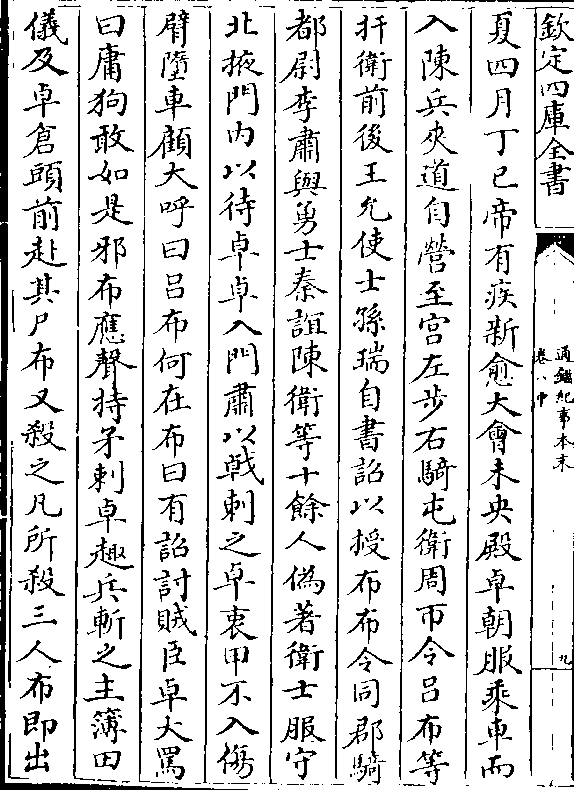 欽定四庫全書
通鑑紀事本末
卷八中
九
夏四月丁巳帝有疾新愈大會未央殿卓朝服乘車而
入陳兵夾道自營至宫左步右騎屯衛周帀令吕布等
扞衛前後王允使士孫瑞自書詔以授布布令同郡騎
都尉李肅與勇士秦誼陳衛等十餘人偽著衛士服守
北掖門内以待卓卓入門肅以戟刺之卓衷甲不入傷
臂墮車顧大呼曰吕布何在布曰有詔討賊臣卓大罵
曰庸狗敢如是邪布應聲持矛刺卓趣兵斬之主簿田
儀及卓倉頭前赴其尸布又殺之凡所殺三人布即出